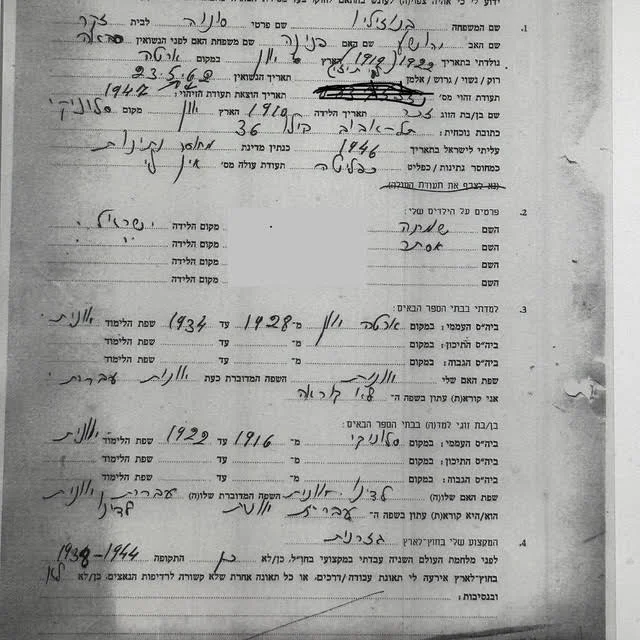 1. שם המשפחה בנוזיליו שם פרטי סינורה לבית זקר
שם האב יהושע שם האם פנינה שם משפחת האם לפני הנשואין
נולדתי בתאריך 1922 הארץ יוון במקום ארטה
רוק / נשוי / גרוש / אלמן תאריך הנשואין
תעודת זהוי מס' תאריך הוצאת תעודת הזיהוי: 1947
שם בן/בת הזוג תאריך הלידה 1910 הארץ יוון מקום סלוניקי
כתובת נוכחית: תל-אביב בילו 36
עליתי לישראל בתאריך 1946 כנתין מדינת מחוסר נתינות
כמחוסר נתינות / כפליט כפליטה תעודת עולה מס' אין לי
(נא לצרף את תעודת העולה)
2. פרטים על הילדים שלי:
השם שמחה מקום הלידה ישראל
השם אסתר מקום הלידה " "
השם מקום הלידה
השם מקום הלידה
3. למדתי בבתי הספר הבאים:
ביה"ס העממי: במקום ארטה יוון מ- 1928 עד 1934 שפת הלימוד יוונית
ביה"ס התיכון: במקום מ- עד שפת הלימוד
ביה"ס הגבוה: במקום מ- עד שפת הלימוד
שפת האם שלי יוונית השפה המדוברת כעת יוונית עברית
אני קורא(ת) עתון בשפה ה- לא קוראה
בן/בת זוגי למד(ה) בבתי הספר הבאים:
ביה"ס העממי: במקום סלוניקי מ- 1916 עד 1922 שפת הלימוד יוונית
ביה"ס התיכון: במקום מ- עד שפת הלימוד
ביה"ס הגבוה: במקום מ- עד שפת הלימוד
שפת האם שלו(ה) לדינו - יוונית השפה המדוברת שלו(ה) עברית יוונית
הוא/היא קורא(ת) עתון בשפה ה- עברית יוונית לדינו
4. המקצוע שלי בחוץ-לארץ גזרנית
לפני מלחמת העולם השניה עבדתי במקצועי בחו"ל, כן/לא כן התקופה 1938-1944
בחוץ-לארץ אירעה לי תאונת עבודה/דרכים, או כל תאונה אחרת שלא קשורה לרדיפות הנאצים, כן/לא לא
ובנסיבות: